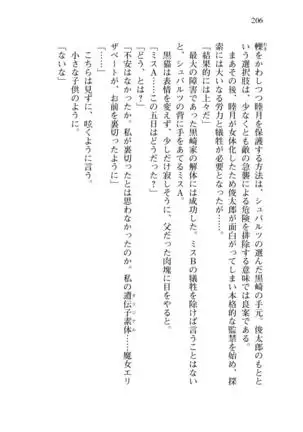 206
轢をかわしつつ睦月を保護する方法は、シュバルツの選んだ黒崎の手元。俊太郎のもとと
いう選択肢は、少なくとも敵の急襲による危険を排除する意味では良案である。
まあその後、睦月が女体化したため俊太郎が面白がってしまい本格的な監禁を始め、探
索には大いなる労力と犠牲が必要となったが。
「結果的には上々だ」
最大の障害であった黒崎家の解体には成功した。ミスBの犠牲を除けば言うことはない
と、シュバルツの背に手をあてるミスA。
黒猫は表情を変えず、少しだけ寂しそうに、父だった肉塊に目をやると。
「ミスA……この五日はどうだった？」
「どう、とは？」
「不安はなかったか。私が裏切ったとは思わなかったのか。私の遺伝子素体……魔女エリ
ザベートが、お前を裏切ったように」
「……」
こちらは見ずに、呟くように言う。
小さな子供のように。
「ないな」